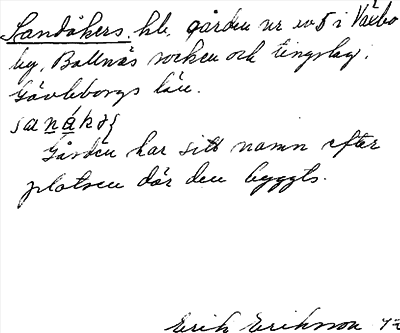 Sandåkers, hb, gården nr 5 i Växbo
by, Bollnäs socken och tingslag,
Gävleborgs län.
sanákəʃ
Gården har sitt namn efter
platsen där den byggts.
Erik Eriksson